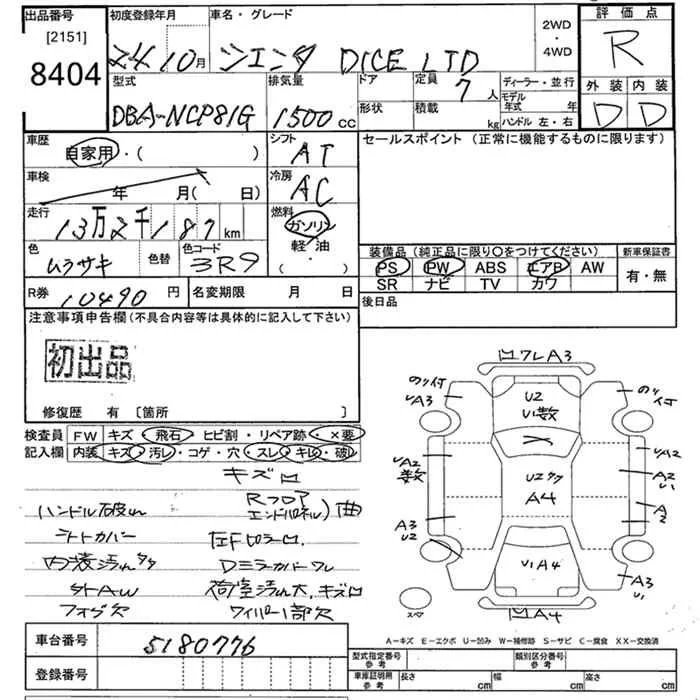 出品番号
[2151]
8404
初度登録年月
24 10月
車名・グレード
シエンタ DICE LTD
2WD
・
4WD
評価点
R
外装 内装
D D
型式
DBA-NCP81G
排気量
1500 cc
ドア
定員
7 人
形状
積載
kg
ディーラー・並行
モデル年式 年
ハンドル 左・右
車歴
自家用・( )
シフト
AT
車検
年 月( 日)
冷房
AC
走行
13万2千187 km
燃料
ガソリン
軽・油
・( )
色
ムラサキ
色替
色コード
3R9
R券
10490 円
名変期限 月 日
セールスポイント (正常に機能するものに限ります)
装備品 (純正品に限り○をつけてください)
PS PW ABS エアB AW
SR ナビ TV カワ
新車保証書
有・無
後日品
注意事項申告欄(不具合内容等は具体的に記入して下さい)
初出品
修復歴 有 [箇所 ]
検査員記入欄
FW キズ・飛石・ヒビ割・リペア跡・×要
内装 キズ・汚レ・コゲ・穴・スレ・キレ・破レ
キズロ
ハンドル破れ
Rフロア エンドパネル)曲
ライトカバー
内装汚れ多々
Dミラーカバーワレ
外AW
荷室汚れ大、キズロ
フォグ欠
ワイパー1部欠
ワレA3
のリ付
A3
U2
U1数
のリ付
A2
数
U2多々
A4
A2
A2
U1
A3
U2
A
2
U1A4
A3
U1
A4
スペア
A-キズ E-エクボ U-凹み W-補修跡 S-サビ C-腐食 XX-交換済
車台番号
5180776
登録番号
型式指定番号
参考
類別区分番号
参考
車庫証明用
参考
長さ cm
幅 cm
高さ cm